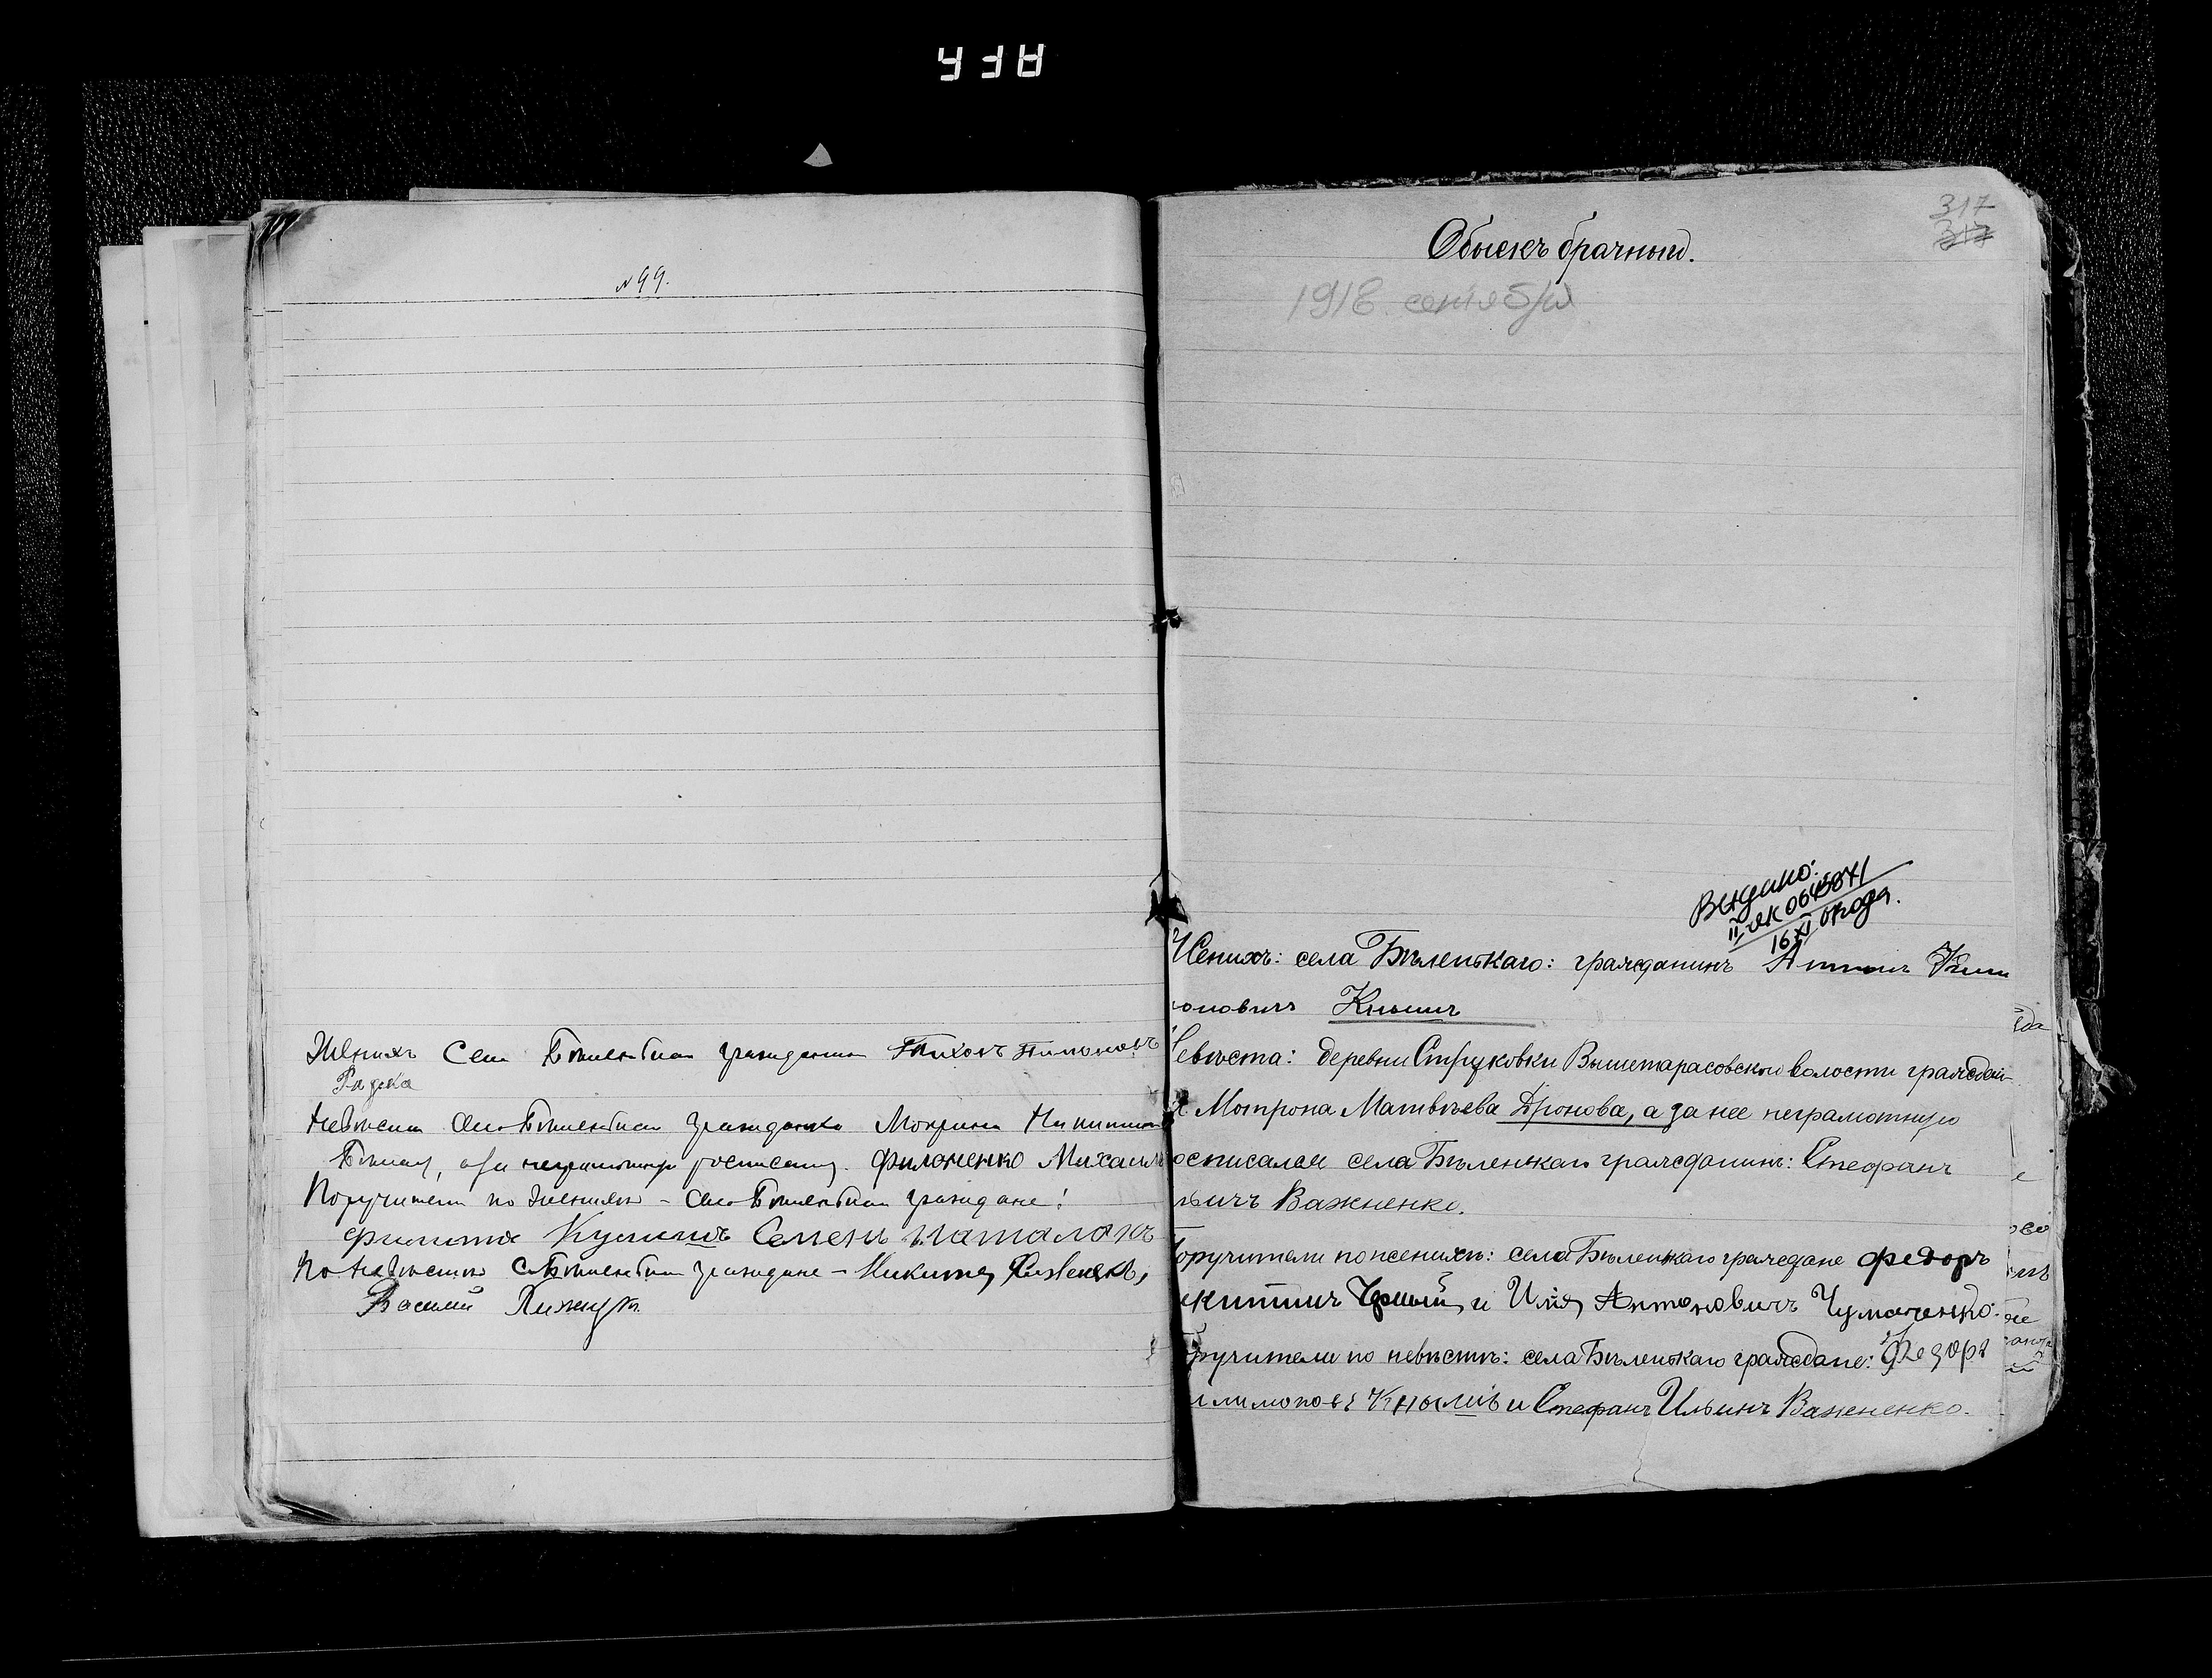 № 99.
Женихъ Села Бѣленькаго гражданинъ Тихонъ
Невѣста села Бѣленькаго гражданка Никитина
неграмотную росписался Филоненко Михаилъ
Поручители по женихѣ – села Бѣленькаго граждане:
Семенъ Шаталовъ
По невѣстѣ с. Бѣленькаго граждане – Никита
Василий
317
Обыскъ брачный.
1918 сентября
Видано:
II ЯК
16 XI
Женихъ: села Бѣленькаго: гражданинъ Антонъ
оновичъ Кнышъ
евѣста: деревни Струковки Вышетарасовской волости граждан-
Мотрона Матвѣева Дронова, а за нее неграмотную
осписался села Бѣленькаго гражданинъ: Стефанъ
ьичъ Важненко.
оручители по женихѣ: села Бѣленькаго граждане Федоръ
китичъ и Илія Антоновичъ Чумаченко.
оручители по невѣстѣ: села Бѣленькаго граждане: Федоръ
лимоновъ Кнышъ и Стефанъ Ильинъ Важненко.